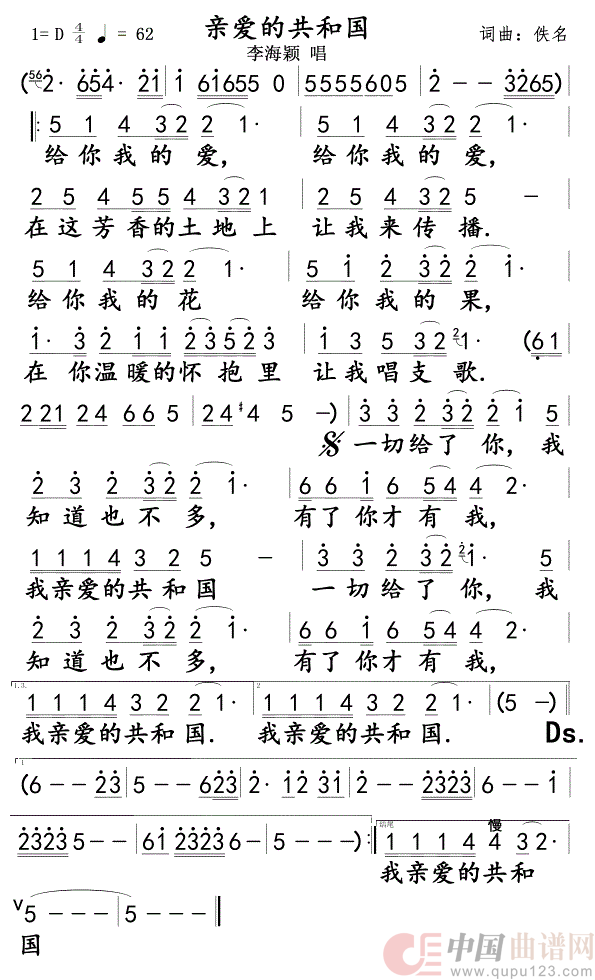 亲爱的共和国
1=D 4/4 ♩= 62
词曲：佚名
李海颖 唱
(56 2· 654· 21 | 1 61655 0 | 55555605 | 2 - - 3265)
5 1 4 32 2 1· | 5 1 4 32 2 1· |
给你我的爱， 给你我的爱，
2 5 4 55 4 321 | 2 5 4 325 - |
在这芳香的土地上 让我来传播.
5 1 4 32 2 1· | 5 1 2 32 2 1· |
给你我的花 给你我的果，
1· 3 2 1 1 23523 | 1 3 5 32 2 1· (61 |
在你温暖的怀抱里 让我唱支歌.
2 21 24 66 5 | 24 #4 5 -) | 3 3 2 32 2 1 5 |
一切给了你，我
2 3 2 32 2 1· | 66 1 6 54 4 2· |
知道也不多， 有了你才有我，
1 1 1 4 3 2 5 - | 3 3 2 32 2 1· 5 |
我亲爱的共和国 一切给了你，我
2 3 2 32 2 1· | 66 1 6 54 4 2· |
知道也不多， 有了你才有我，
1.3. 1 1 1 4 3 2 2 1· | 2 1 1 1 4 3 2 2 1 | (5 -) |
我亲爱的共和国. 我亲爱的共和国. Ds.
1 (6 - - 23 | 5 - - 623 | 2· 12 31 | 2 - - 2323 | 6 - - 1 |
2323 5 - - | 61 2323 6 - | 5 - - -) :| 结尾 1 1 1 4 慢 4 3 2· |
我亲爱的共和
V 5 - - - | 5 - - - ‖
国
中国曲谱网
www.qupu123.com